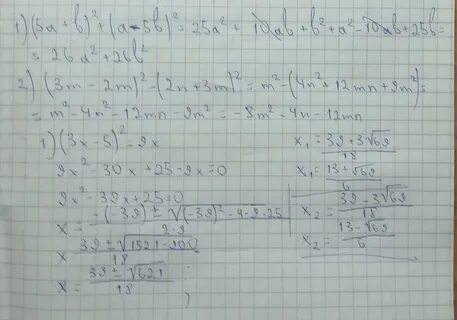 1) (5a + b)² + (a - 5b)² = 25a² + 10ab + b² + a² - 10ab + 25b =
= 26a² + 26b²
2) (3m - 2m)² - (2n + 3m)² = m² - (4n² + 12mn + 9m²) =
= m² - 4n² - 12mn - 9m² = -8m² - 4n - 12mn
1) (3x - 5)² = 9x
9x² - 30x + 25 - 9x = 0
9x² - 39x + 25 = 0
x = (-(-39) ± √((-39)² - 4·9·25))/(2·9)
x = (39 ± √(1521 - 900))/18
x = (39 ± √621)/18
x₁ = (39 + 3√69)/18
x₁ = (13 + √69)/6
x₂ = (39 - 3√69)/18
x₂ = (13 - √69)/6